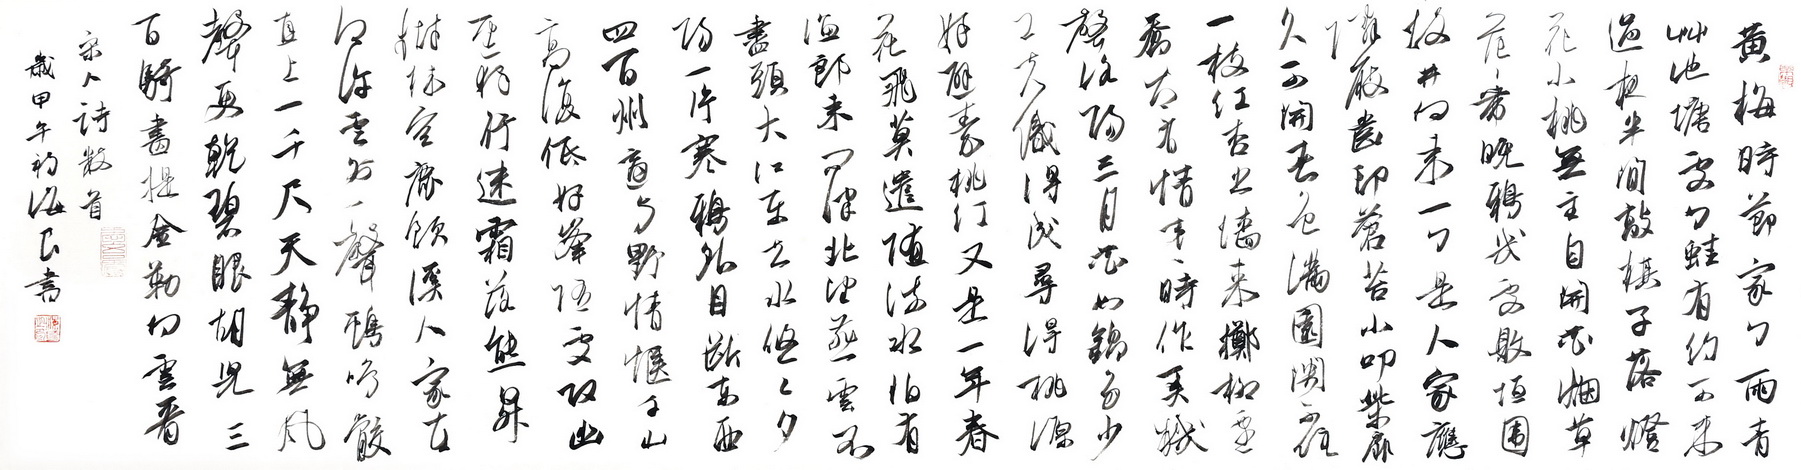 黄梅時節家々雨青
草池塘處々蛙有約不来
過夜半閒敲棋子落燈
花小桃無主自開花烟草
茫々帶晚鴉幾處敗垣圍
故井向来一々是人家應
憐屐齒印蒼苔小叩柴扉
久不開春色滿園關不住
一枝红杏出墙来擲柳遷
喬太有情交々時作弄機
聲洛陽三月花如錦多少
工夫織得成尋得桃源
好避秦桃红又是一年春
花飛莫遣随流水怕有
漁郎来問津北望燕雲不
盡頭大江東去水悠々夕
陽一片寒鴉外目断東西
四百州適与野情愜千山
高復低好峰随處改幽
徑獨行迷霜落熊昇
樹林空鹿飲溪人家在
何許雲外一聲鷄鳴骹
直上一千尺天静無風
聲更乾碧眼胡兒三
百騎盡提金勒向雲看
宋人詩數首
歲甲午初海良書